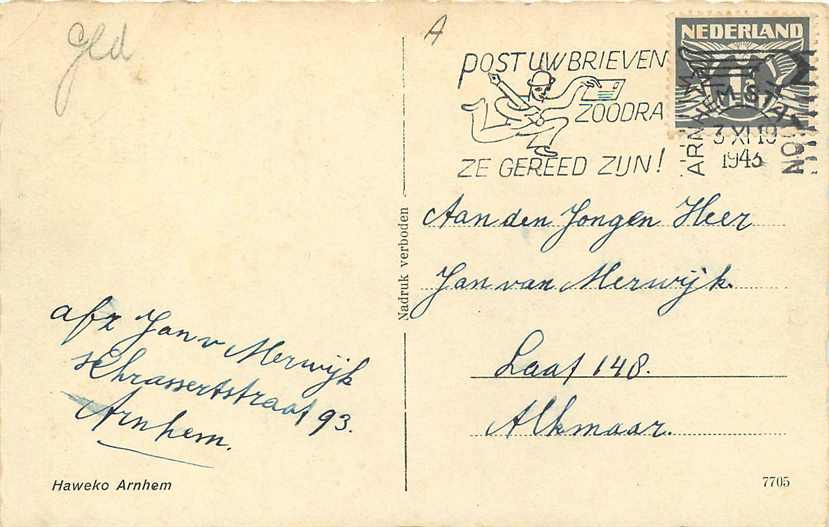 Gld
A
POST UW BRIEVEN
ZOODRA
ZE GEREED ZIJN!
NEDERLAND
1
ARNHEM-STATION
3 XI 10
1943
Aan den Jongen Heer
Jan van Merwijk.
Laat 148.
Alkmaar.
Nadruk verboden
afz Jan v Merwijk
schrassertstraat 93.
Arnhem.
Haweko Arnhem
7705